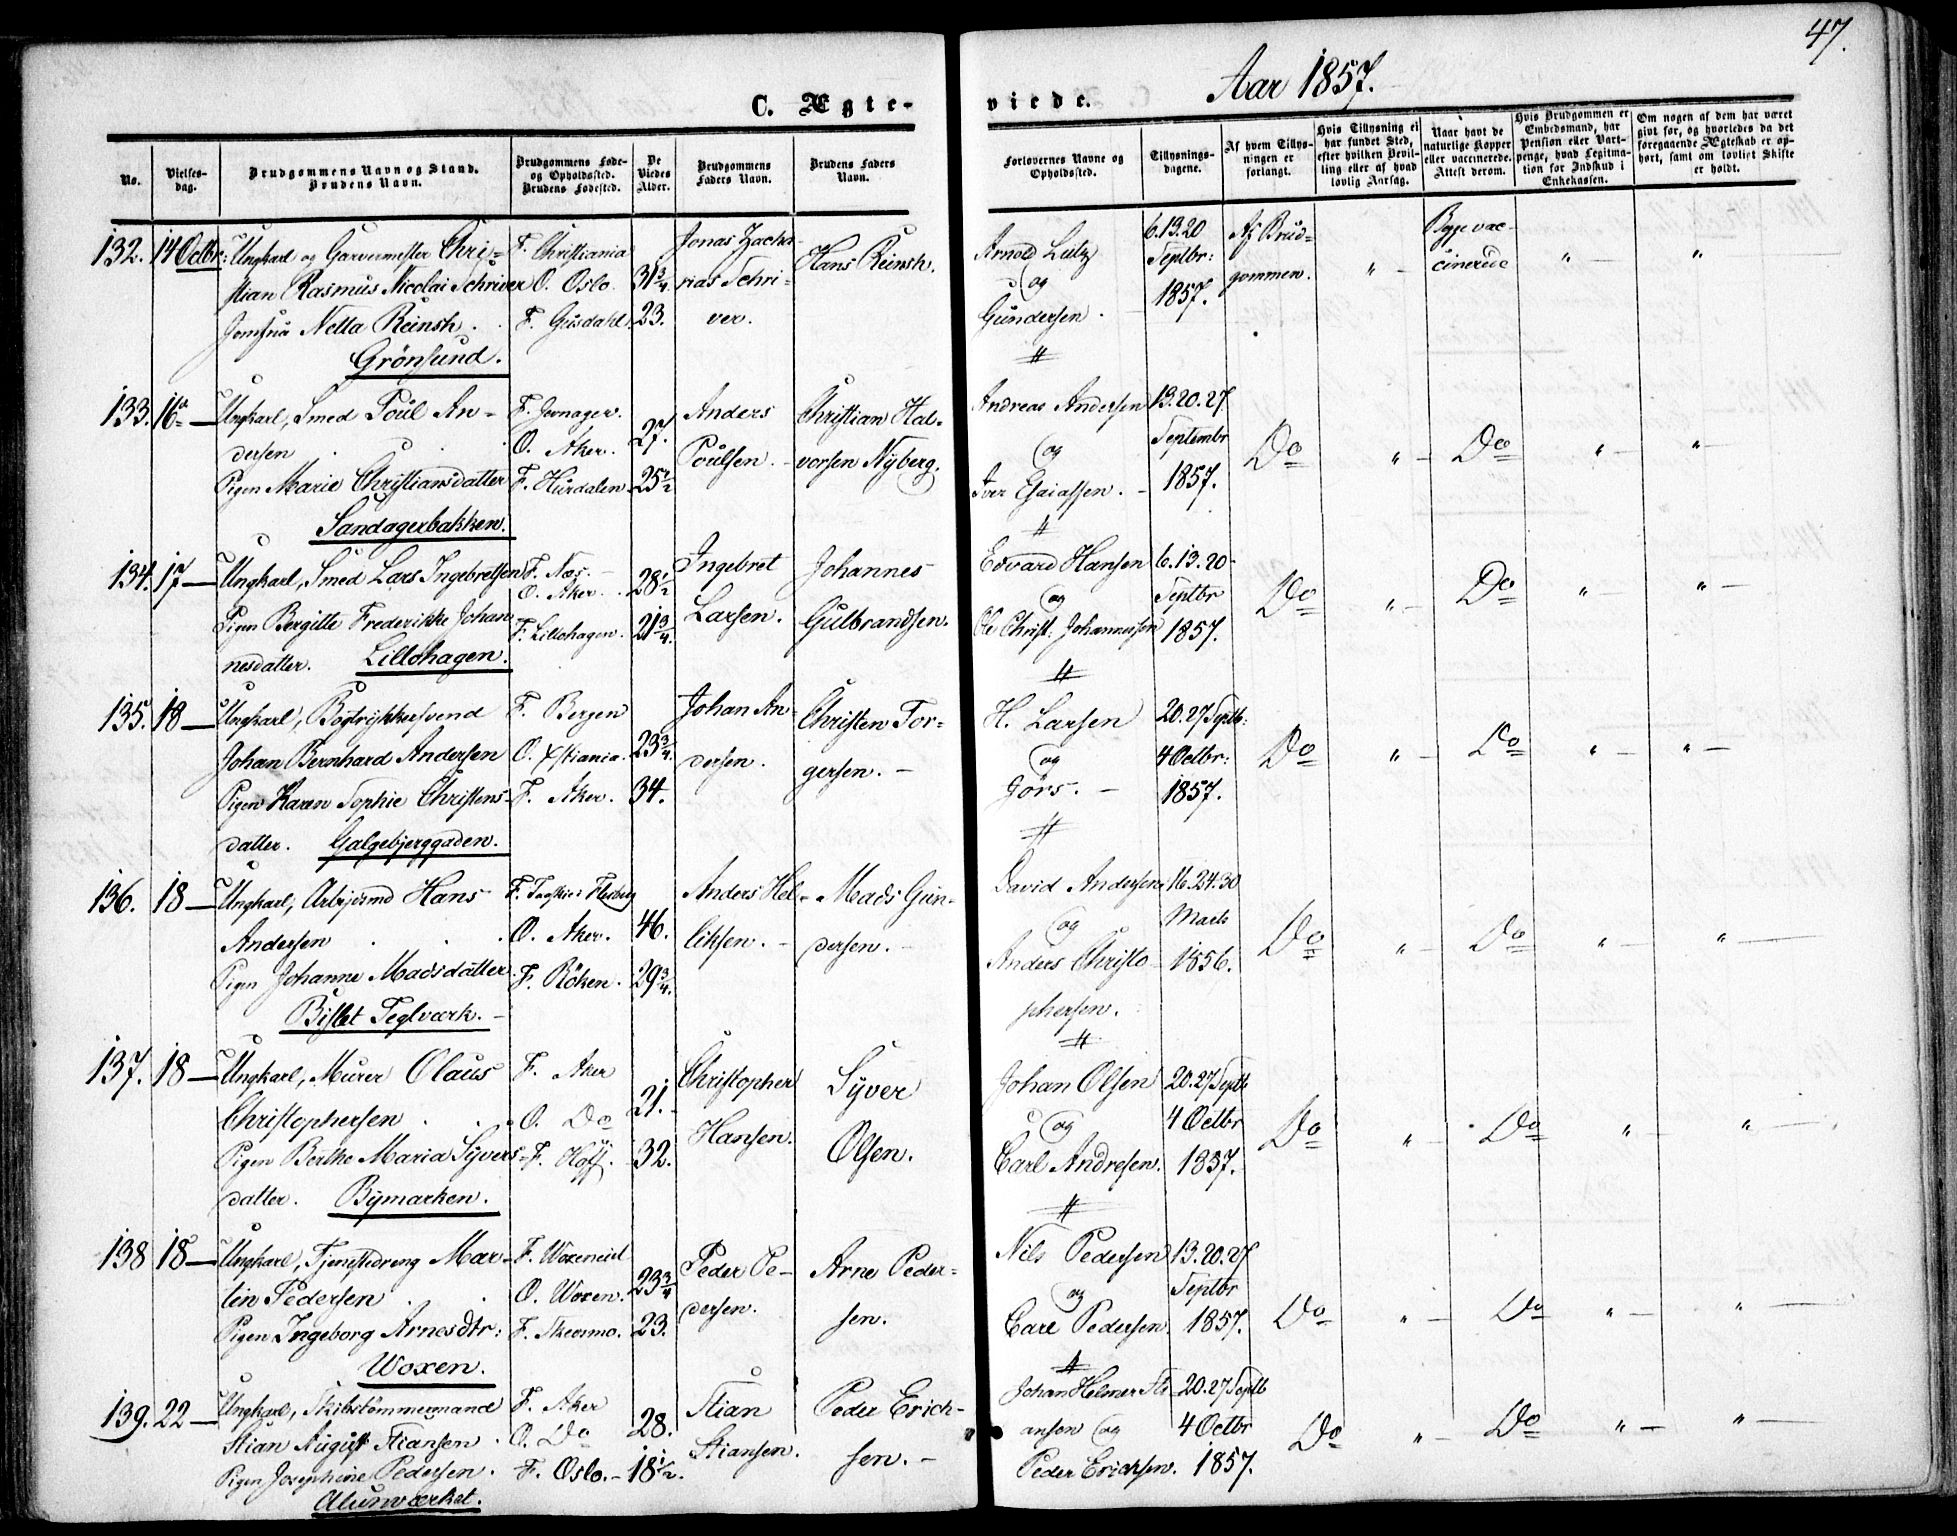 47.
Aar 1857.
C. Ægte-
viede.
No.
Vielses-
dag.
Brudgommens Navn og Stand.
Brudens Navn.
Brudgommens Føde-
og Opholdssted.
Brudens Fødested.
De
Viedes
Alder.
Brudgommens
Faders Navn.
Brudens Faders
Navn.
Forlovernes Navne og
Opholdssted.
Tillysnings-
dagene.
Af hvem Tillys-
ningen er
forlangt.
Hvis Tillysning ei
har fundet Sted,
efter hvilken Bevil-
ling eller af hvad
lovlig Aarsag.
Naar havt de
naturlige Kopper
eller vaccinerede.
Attest derom.
Hvis Brudgommen er
Embedsmand, har
Pension eller Vart-
penge, hvad Legitima-
tion for Indskud i
Enkekassen.
Om nogen af dem har været
givt før, og hvorledes da det
foregaaende Ægteskab er op-
hørt, samt om lovligt Skifte
er holdt.
132. 14 Octbr:
Ungkarl og Garvermester Chri-
stian Rasmus Nicolai Schriver
Jomfru Netta Reinsh.
Grönsund.
F. Christiania
O. Oslo.
F. Gusdahl
31¾
23.
Jonas Zacha-
rias Schri-
ver.
Hans Reinsh.
Arnold Lutz
og
Gundersen.
6. 13. 20
Septbr:
1857.
Af Brud-
gommen.
"
Begge vac-
cinerede
"
"
133. 16de —
Ungkarl, Smed Poul An-
dersen
Pigen Marie Christiansdatter
Sandagerbakken.
F. Jevnager.
O. Aker.
F. Hurdalen
27.
25½
Anders
Poulsen.
Christian Hal-
vorsen Nyberg.
Andreas Andersen
og
Iver Esaiassen.
13. 20. 27
Septembr
1857.
Do
"
Do
"
"
134. 17 —
Ungkarl, Smed Lars Ingebretsen
Pigen Bergitte Frederikke Johan
nesdatter. Lillohagen.
F. Næs.
O. Aker.
F. Lillohagen.
28½
21¾.
Ingebret
Larsen.
Johannes
Gulbrandsen.
Edvard Hansen
og
Ole Christ: Johannessen
6. 13. 20
Septbr
1857.
Do
"
Do
"
"
135. 18 —
Ungkarl, Bogtrykkersvend
Johan Bernhard Andersen
Pigen Karen Sophie Christens-
datter. Galgebjerggaden.
F. Bergen
O. Xstiania.
F. Aker.
23¾
34.
Johan An-
dersen.
Christen Tor-
gersen.
H. Larsen
og
Jörs.
20. 27 Septb:
4 Octbr:
1857.
Do
"
Do
"
"
136. 18 —
Ungkarl, Arbejdsmd Hans
Andersen
Pigen Johanne Madsdatter
Bislet Teglværk.
O. Aker.
F. Röken.
46.
29¾.
Anders Hel-
liksen.
Mads Gun-
dersen.
David Andersen
og
Anders Christo-
phersen.
16. 24. 30
Marts
1856.
Do
"
Do
"
"
137. 18 —
Ungkarl, Murer Olaus
Christophersen
Pigen Berthe Maria Syvers-
datter. Bymarken.
F. Aker
O. Do
F. Hoff.
21.
32.
Christopher
Hansen.
Syver
Olsen.
Johan Olsen
og
Carl Andresen.
20. 27 Septb
4 Octbr
1857.
Do
"
Do
"
"
138 18 —
Ungkarl, Tjenestedreng Mar-
tin Pedersen
Pigen Ingeborg Arnesdtr:
Woxen.
F. Woxeneiet
O. Woxen.
F. Skedsmo.
23¾
23.
Peder Pe-
dersen.
Arne Peder-
sen.
Nils Pedersen
og
Carl Pedersen.
13. 20. 27
Septbr
1857.
Do
"
Do
"
"
139. 22 —
Ungkarl, Skibstömmermand
Stian August Stiansen.
Pigen Josephine Pedersen.
Alunværket.
F. Aker
O. Do
F. Oslo.
28.
18½.
Stian
Stiansen.
Peder Erich-
sen.
Johan Helmer Sti-
ansen og
Peder Erichsen.
20. 27 Septb
4 Octbr
1857.
Do
"
Do
"
"